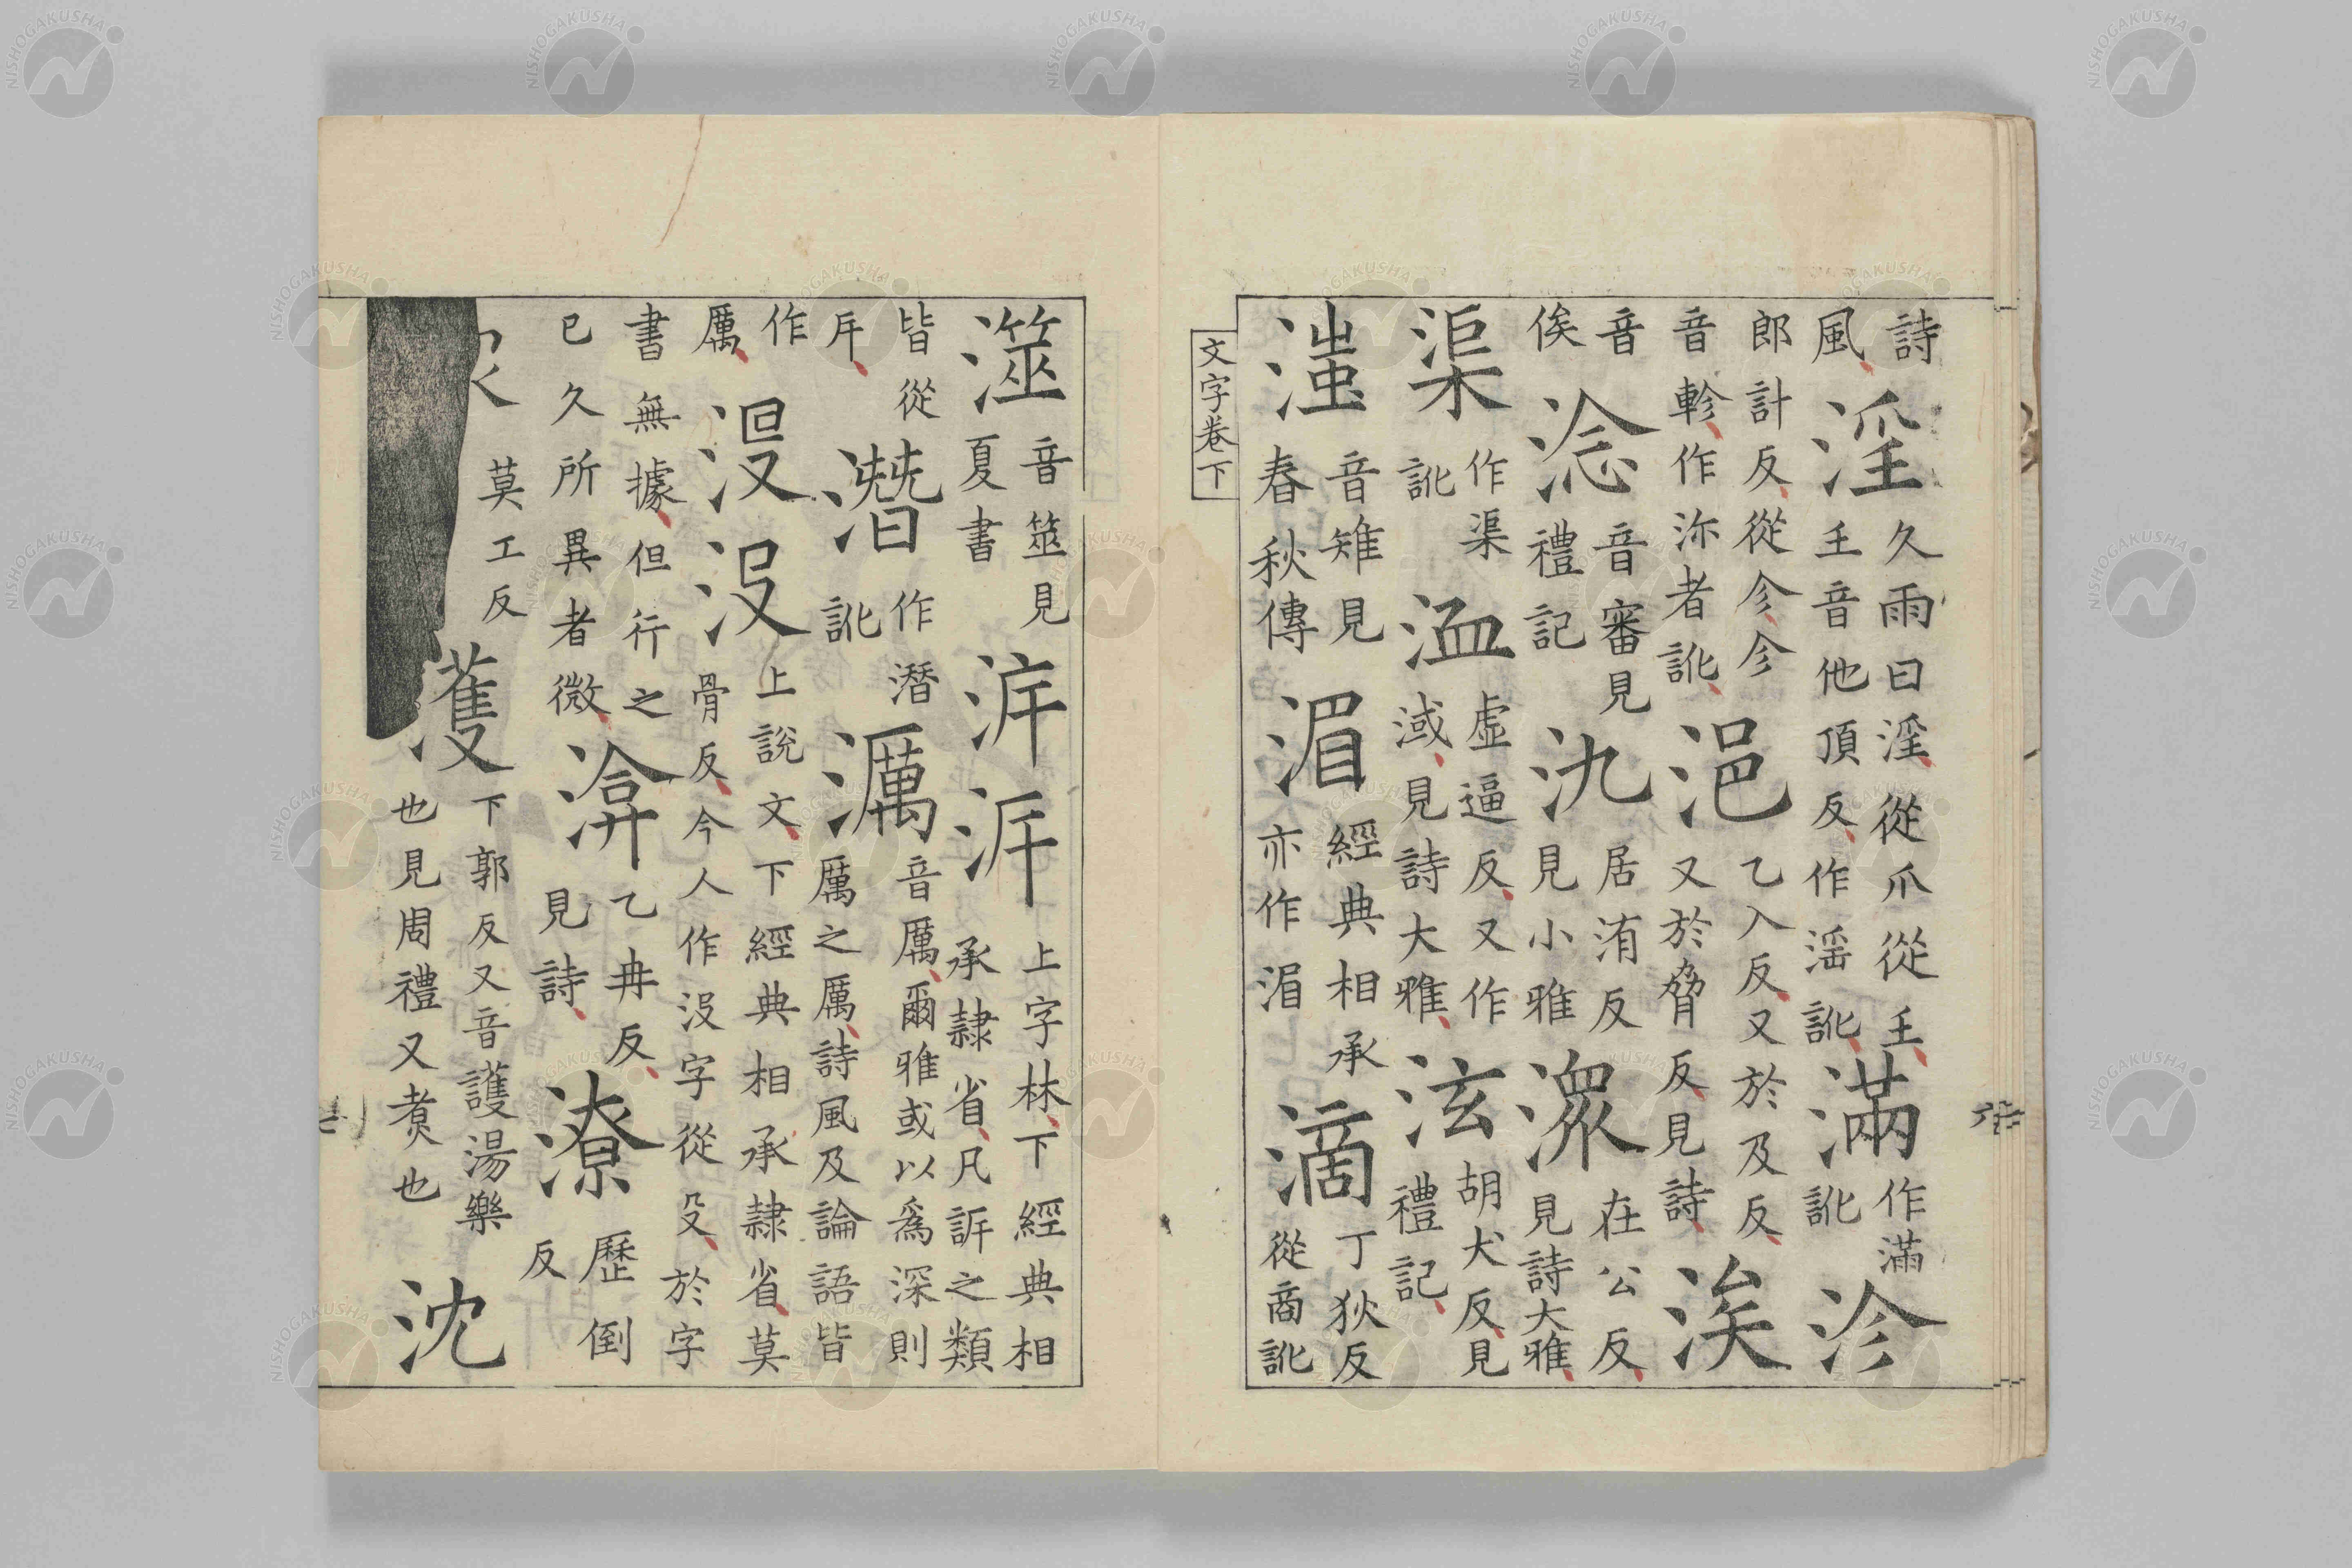 詩風淫久雨曰淫從爪從𡈼𡈼音他頂反作滛訛滿作滿訛沴
郎計反從㐱㐱音軫作沵者訛浥乙入反又於及反又於脅反見詩涘
音俟淰音審見禮記氿居洧反見小雅潀在公反見詩大雅
渠作渠訛洫虛逼反又作淢見詩大雅泫胡犬反見禮記
滍音雉見春秋傳湄經典相承亦作湄滴丁狄反從商訛
文字卷下
澨音筮見夏書泝上字林下經典相承隸省凡訴之類
皆從潛作潜訛濿音厲爾雅或以爲深則厲之厲詩風及論語皆
作厲没上說文下經典相承隸省莫骨反今人作沒字從殳於字
書無據但行之已久所異者微渰乙冉反見詩潦歷倒反
莫工反濩下郭反又音護湯樂也見周禮又煑也沈